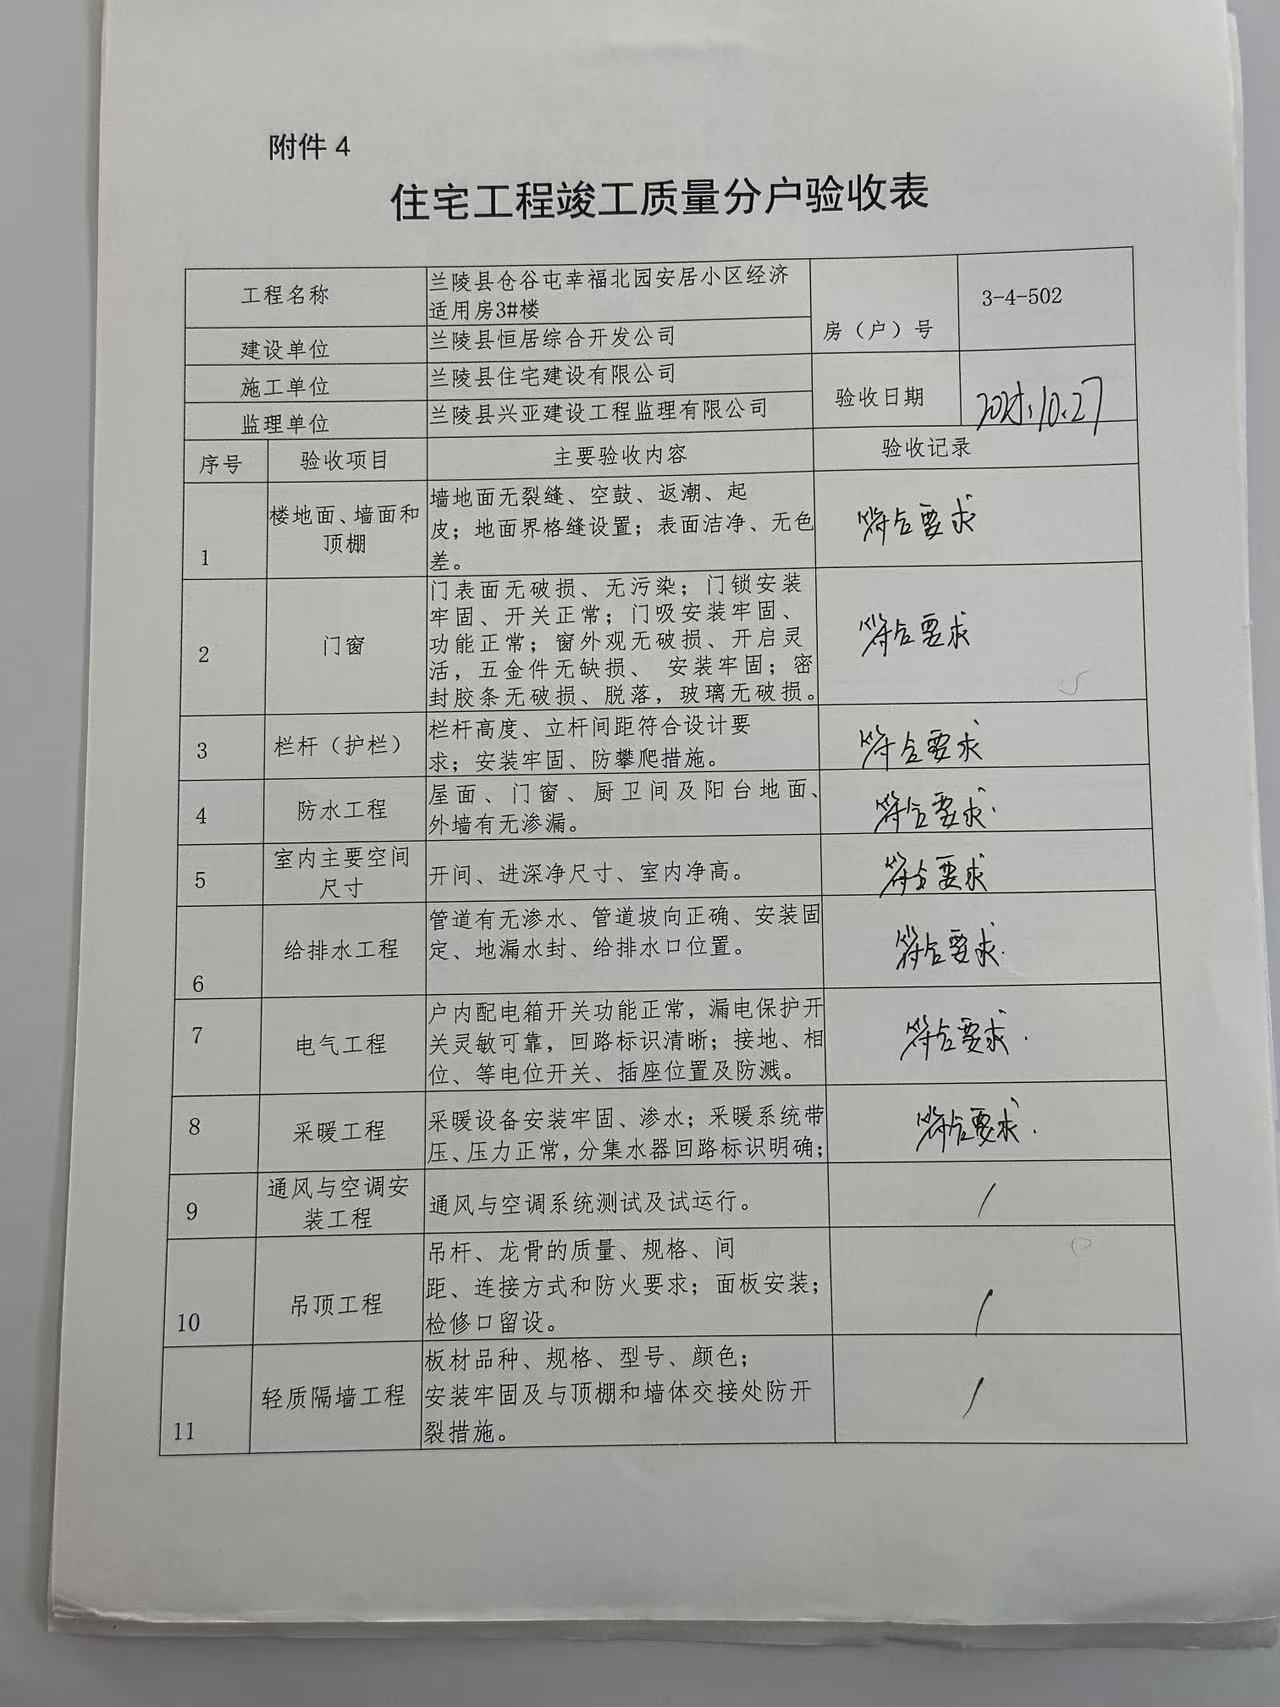 附件 4
住宅工程竣工质量分户验收表
工程名称
兰陵县仓谷屯幸福北园安居小区经济
适用房3#楼
房（户）号
3-4-502
建设单位
兰陵县恒居综合开发公司
施工单位
兰陵县住宅建设有限公司
验收日期
2025.10.27
监理单位
兰陵县兴亚建设工程监理有限公司
序号
验收项目
主要验收内容
验收记录
1
楼地面、墙面和
顶棚
墙地面无裂缝、空鼓、返潮、起
皮；地面界格缝设置；表面洁净、无色
差。
符合要求
2
门窗
门表面无破损、无污染；门锁安装
牢固、开关正常；门吸安装牢固、
功能正常；窗外观无破损、开启灵
活，五金件无缺损、 安装牢固；密
封胶条无破损、脱落，玻璃无破损。
符合要求
3
栏杆（护栏）
栏杆高度、立杆间距符合设计要
求；安装牢固、防攀爬措施。
符合要求
4
防水工程
屋面、门窗、厨卫间及阳台地面、
外墙有无渗漏。
符合要求.
5
室内主要空间
尺寸
开间、进深净尺寸、室内净高。
符合要求
6
给排水工程
管道有无渗水、管道坡向正确、安装固
定、地漏水封、给排水口位置。
符合要求.
7
电气工程
户内配电箱开关功能正常，漏电保护开
关灵敏可靠，回路标识清晰；接地、相
位、等电位开关、插座位置及防溅。
符合要求.
8
采暖工程
采暖设备安装牢固、渗水；采暖系统带
压、压力正常，分集水器回路标识明确；
符合要求.
9
通风与空调安
装工程
通风与空调系统测试及试运行。
/
10
吊顶工程
吊杆、龙骨的质量、规格、间
距、连接方式和防火要求；面板安装；
检修口留设。
/
11
轻质隔墙工程
板材品种、规格、型号、颜色；
安装牢固及与顶棚和墙体交接处防开
裂措施。
/